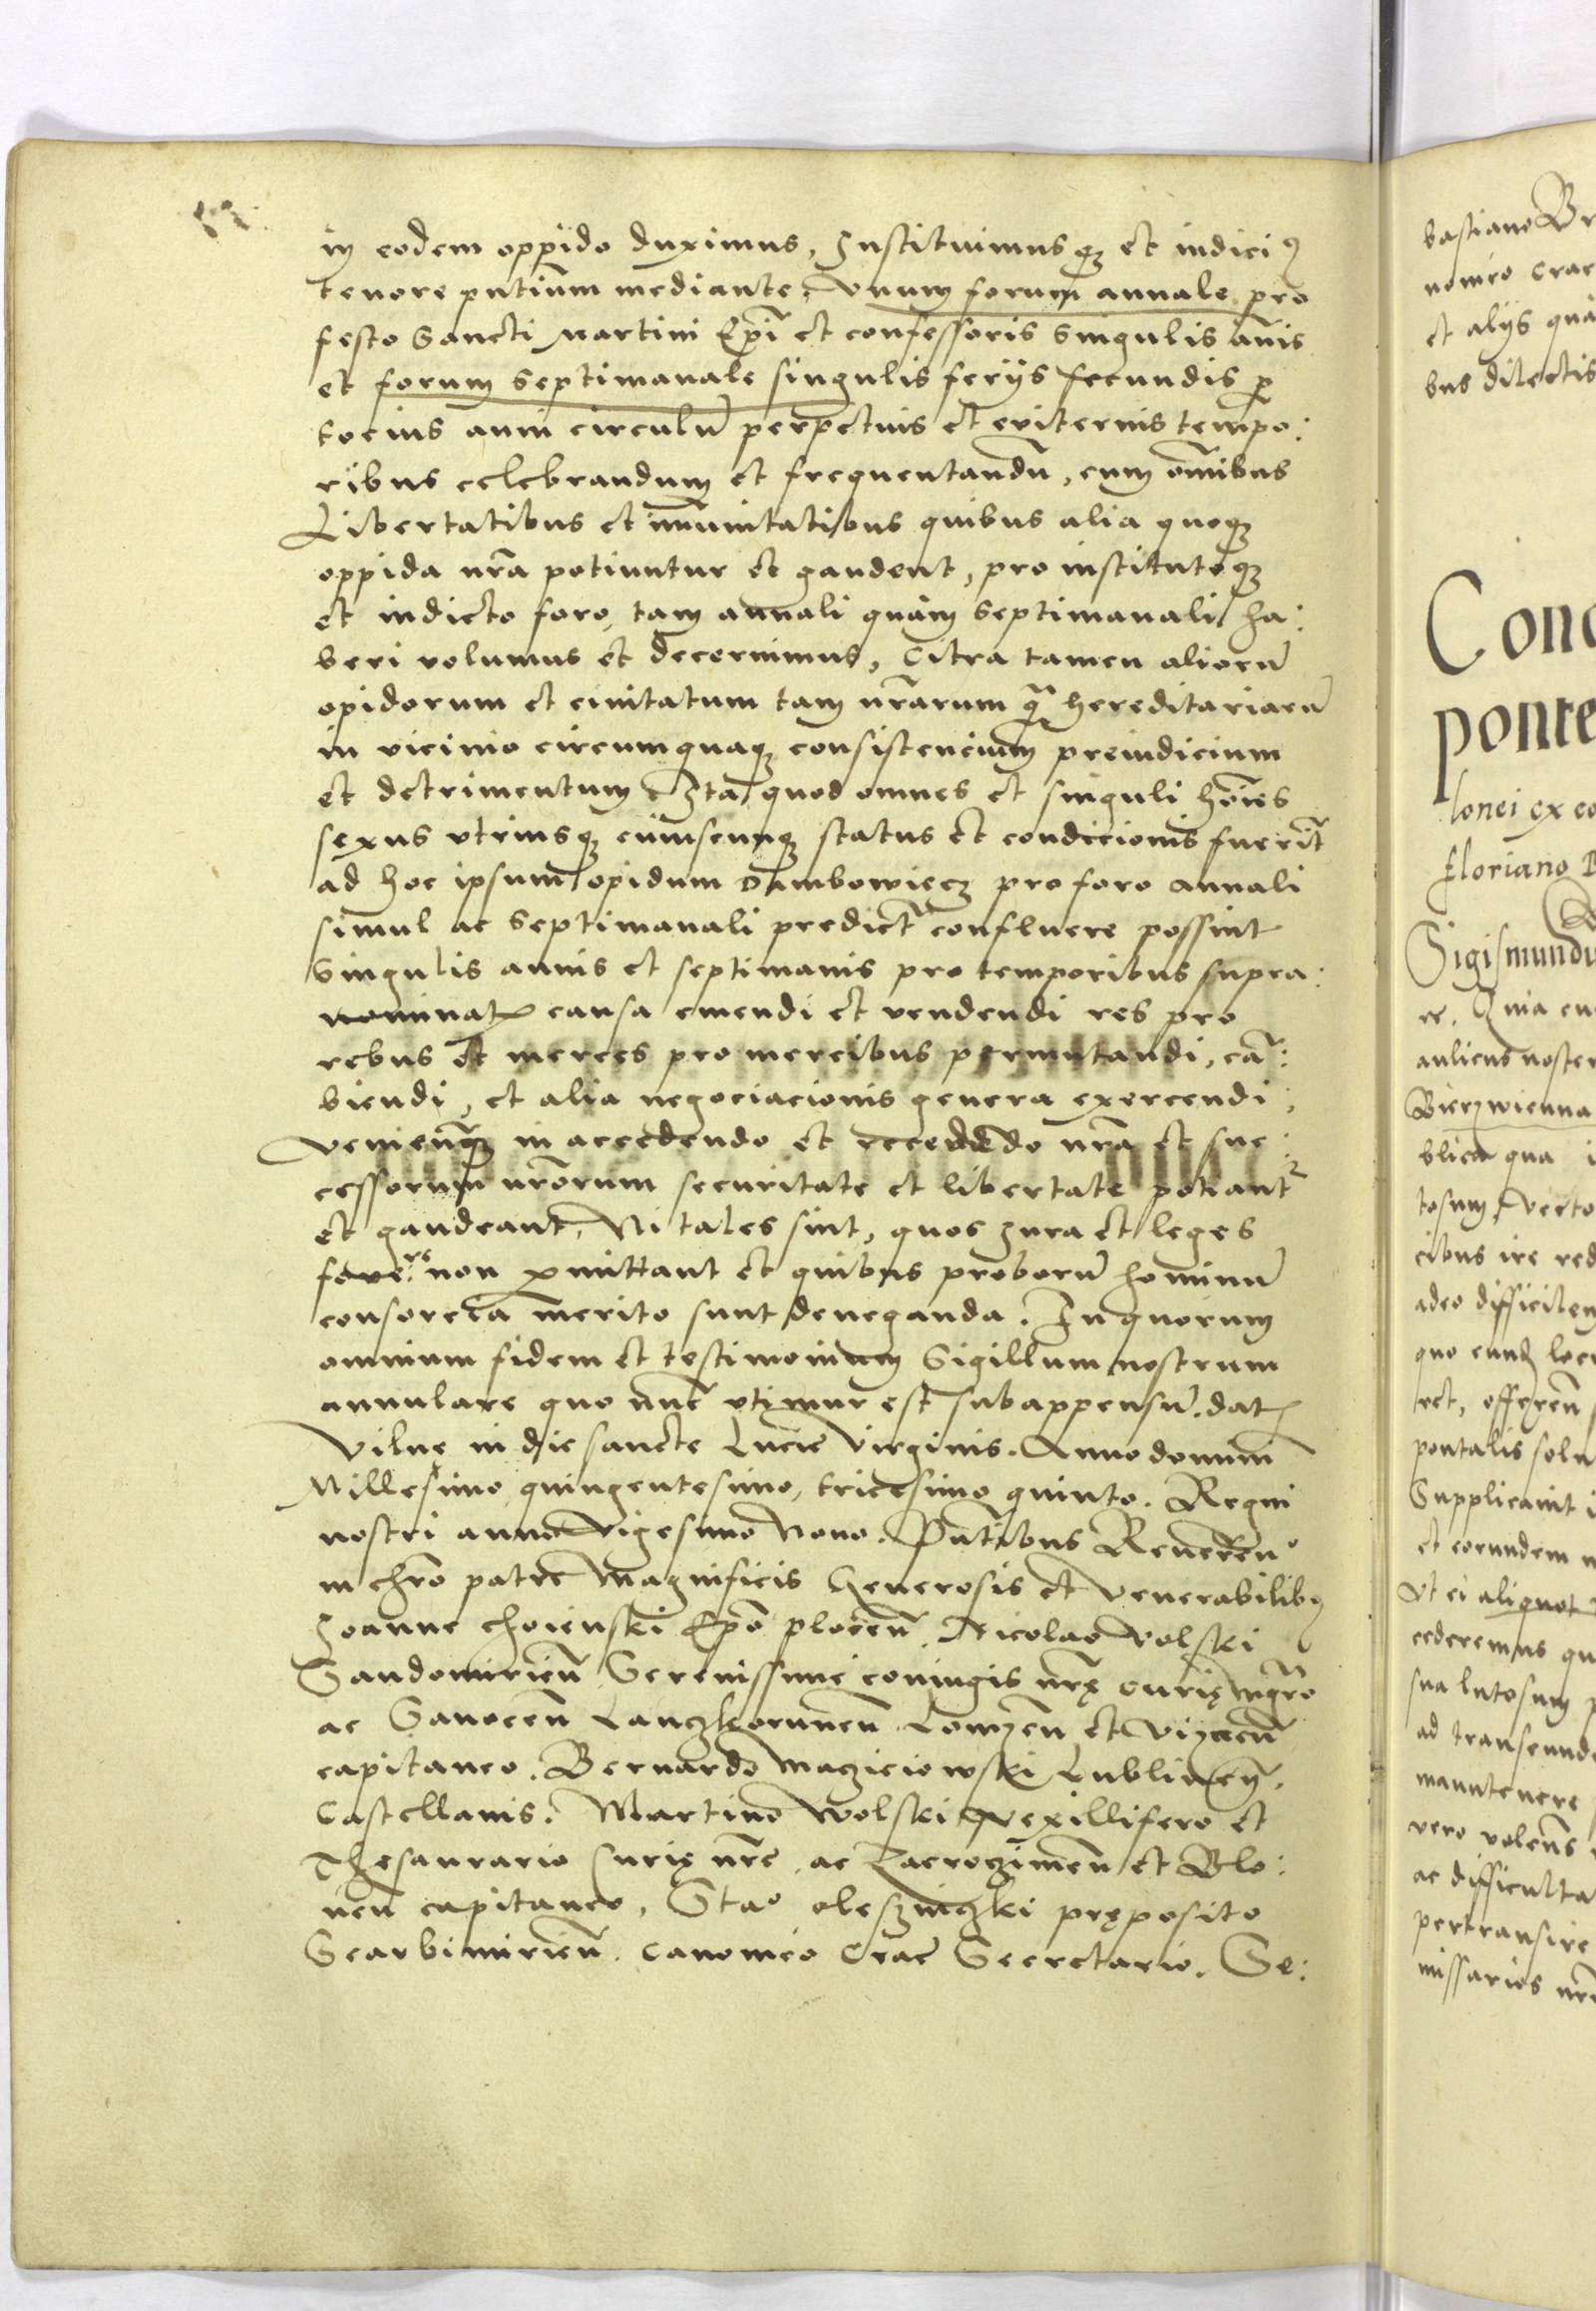 in eodem oppido duximus, Instituimusq et indicim9
tenore pntium mediante, vnum forum annale pro
festo Sancti Martini Epi et confessoris singulis annis
et forum septimanale singulis ferijs secundis p
tocius anni circulu perpetuis et eviternis tempo:
ribus celebrandum et frequentandu, cum omnibus
Libertatibus et immunitatibus quibus alia quoq
oppida nra potiuntur et gaudent, pro institutoq
et indicto foro, tam annali quam septimanali ha:
beri volumus et decernimus, Citra tamen alioru
opidorum et civitatum tam nrarum q hereditariaru
in vicinio circumquaq consistencium preiudicium
et detrimentum Ita quod omnes et singuli hoies
sexus vtriusq cuiuscunq status et condicionis fuerit
ad hoc ipsum opidum Dambowiecz pro foro annali
simul ac septimanali predict confluere possint
singulis annis et septimanis pro temporibus supra:
nominat causa emendi et vendendi res pro
rebus et merces pro mercibus permutandi, ca:
biendi, et alia negociacionis genera exercendi,
venienq in accedendo et recededo nra et suc:
cessorum nrorum securitate et libertate potiant
et gaudeant, Ni tales sint, quos Iura et leges
fovere non pmittant et quibus proboru hominu
consorcia merito sunt deneganda. In quorum
omnium fidem et testimonium Sigillum nostrum
annulare quo nunc vtimur est subappensu. dat
Vilne in die sancte Lucie Virginis. Anno domini
Millesimo, quingentesimo, tricesimo quinto. Regni
nostri anno Vigesimo Nono. Pntibus Reveren
in chro patre Magnificis Generosis et venerabilib9
Joanne Choienski Epo plocen Nicolao volski
Sandomirien Serenissime coniugis nre curie mgro
ac Sanocen Lanczkorunen Lomzen et Viznen
capitaneo. Bernardo Macziciowski Lublinen.
Castellanis. Martino Wolski Vexillifero et
Thesaurario curie nre ac Zacroczimen et Blo:
nen capitaneo, Stao oleszniczki preposito
Scarbimirien. Canonico Crac Secretario. Se:
bastiano Br
nonico Crac
et alijs qua
bus dilectis
Conc
ponte
lonei ex eo
floriano
Sigismundu
rc. Quia cu
aulicus noster
Bierzwienna
blica qua i
tosum, Vecto
cibus ire red
adeo difficilem
quo eund loc
ret, offeren
pontalis solu
Supplicavit i
et eorundem
Vt ei aliquot
cederemus qu
sua lutosum p
ad transeund
manutenere
vero volens
ac difficulta
pertransire
missarios nr